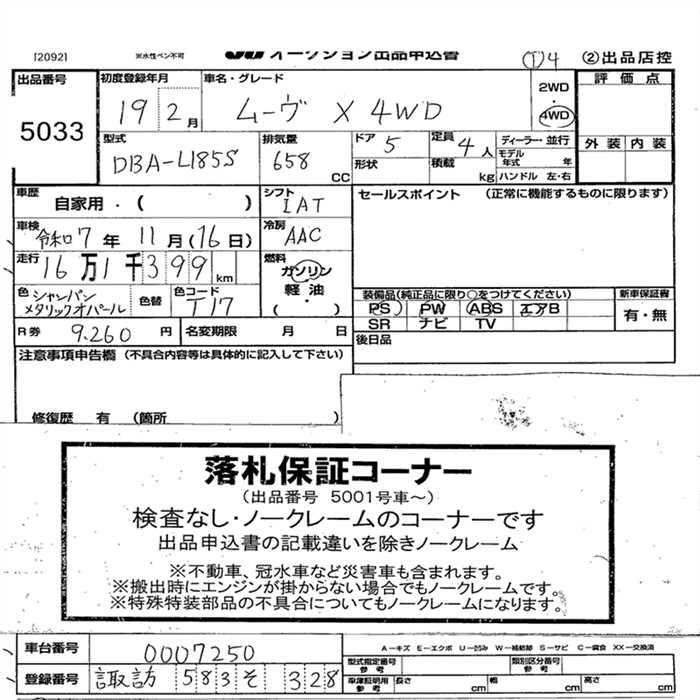 [20921 ※水性ペン不可 オークション出品申込書 ①4 ②出品店控
出品番号 初度登録年月 車名・グレード 2WD 評価点
5033 19 2月 ムーヴ X 4WD 4WD
型式 排気量 ドア 5 定員 4人 ディーラー・並行 外装 内装
DBA-L185S 658 CC 形状 積載 kg モデル年式 年
ハンドル 左・右
車歴 自家用・( ) シフト IAT セールスポイント (正常に機能するものに限ります)
車検 令和7年11月(16日) 冷房 AAC
走行 16万1千399km 燃料 ガソリン
軽油・( )
色 シャンパンメタリックオパール 色替 色コード T17
装備品(純正品に限り○をつけてください) 新車保証書
PS PW ABS エアB 有・無
SR ナビ TV
R券 9.260円 名変期限 月 日 後日品
注意事項申告欄 (不具合内容等は具体的に記入して下さい)
修復歴 有 (箇所 )
落札保証コーナー
(出品番号 5001号車~)
検査なし・ノークレームのコーナーです
出品申込書の記載違いを除きノークレーム
※不動車、冠水車など災害車も含まれます。
※搬出時にエンジンが掛からない場合でもノークレームです。
※特殊特装部品の不具合についてもノークレームになります。
車台番号 0007250 A-キズ E-エクボ U-凹み W-補給跡 S-サビ C-腐食 XX-交換済
型式指定番号 参考 類別区分番号 参考
登録番号 諏訪 583 そ 328 車検証用 参考 長さ cm 幅 cm 高さ cm